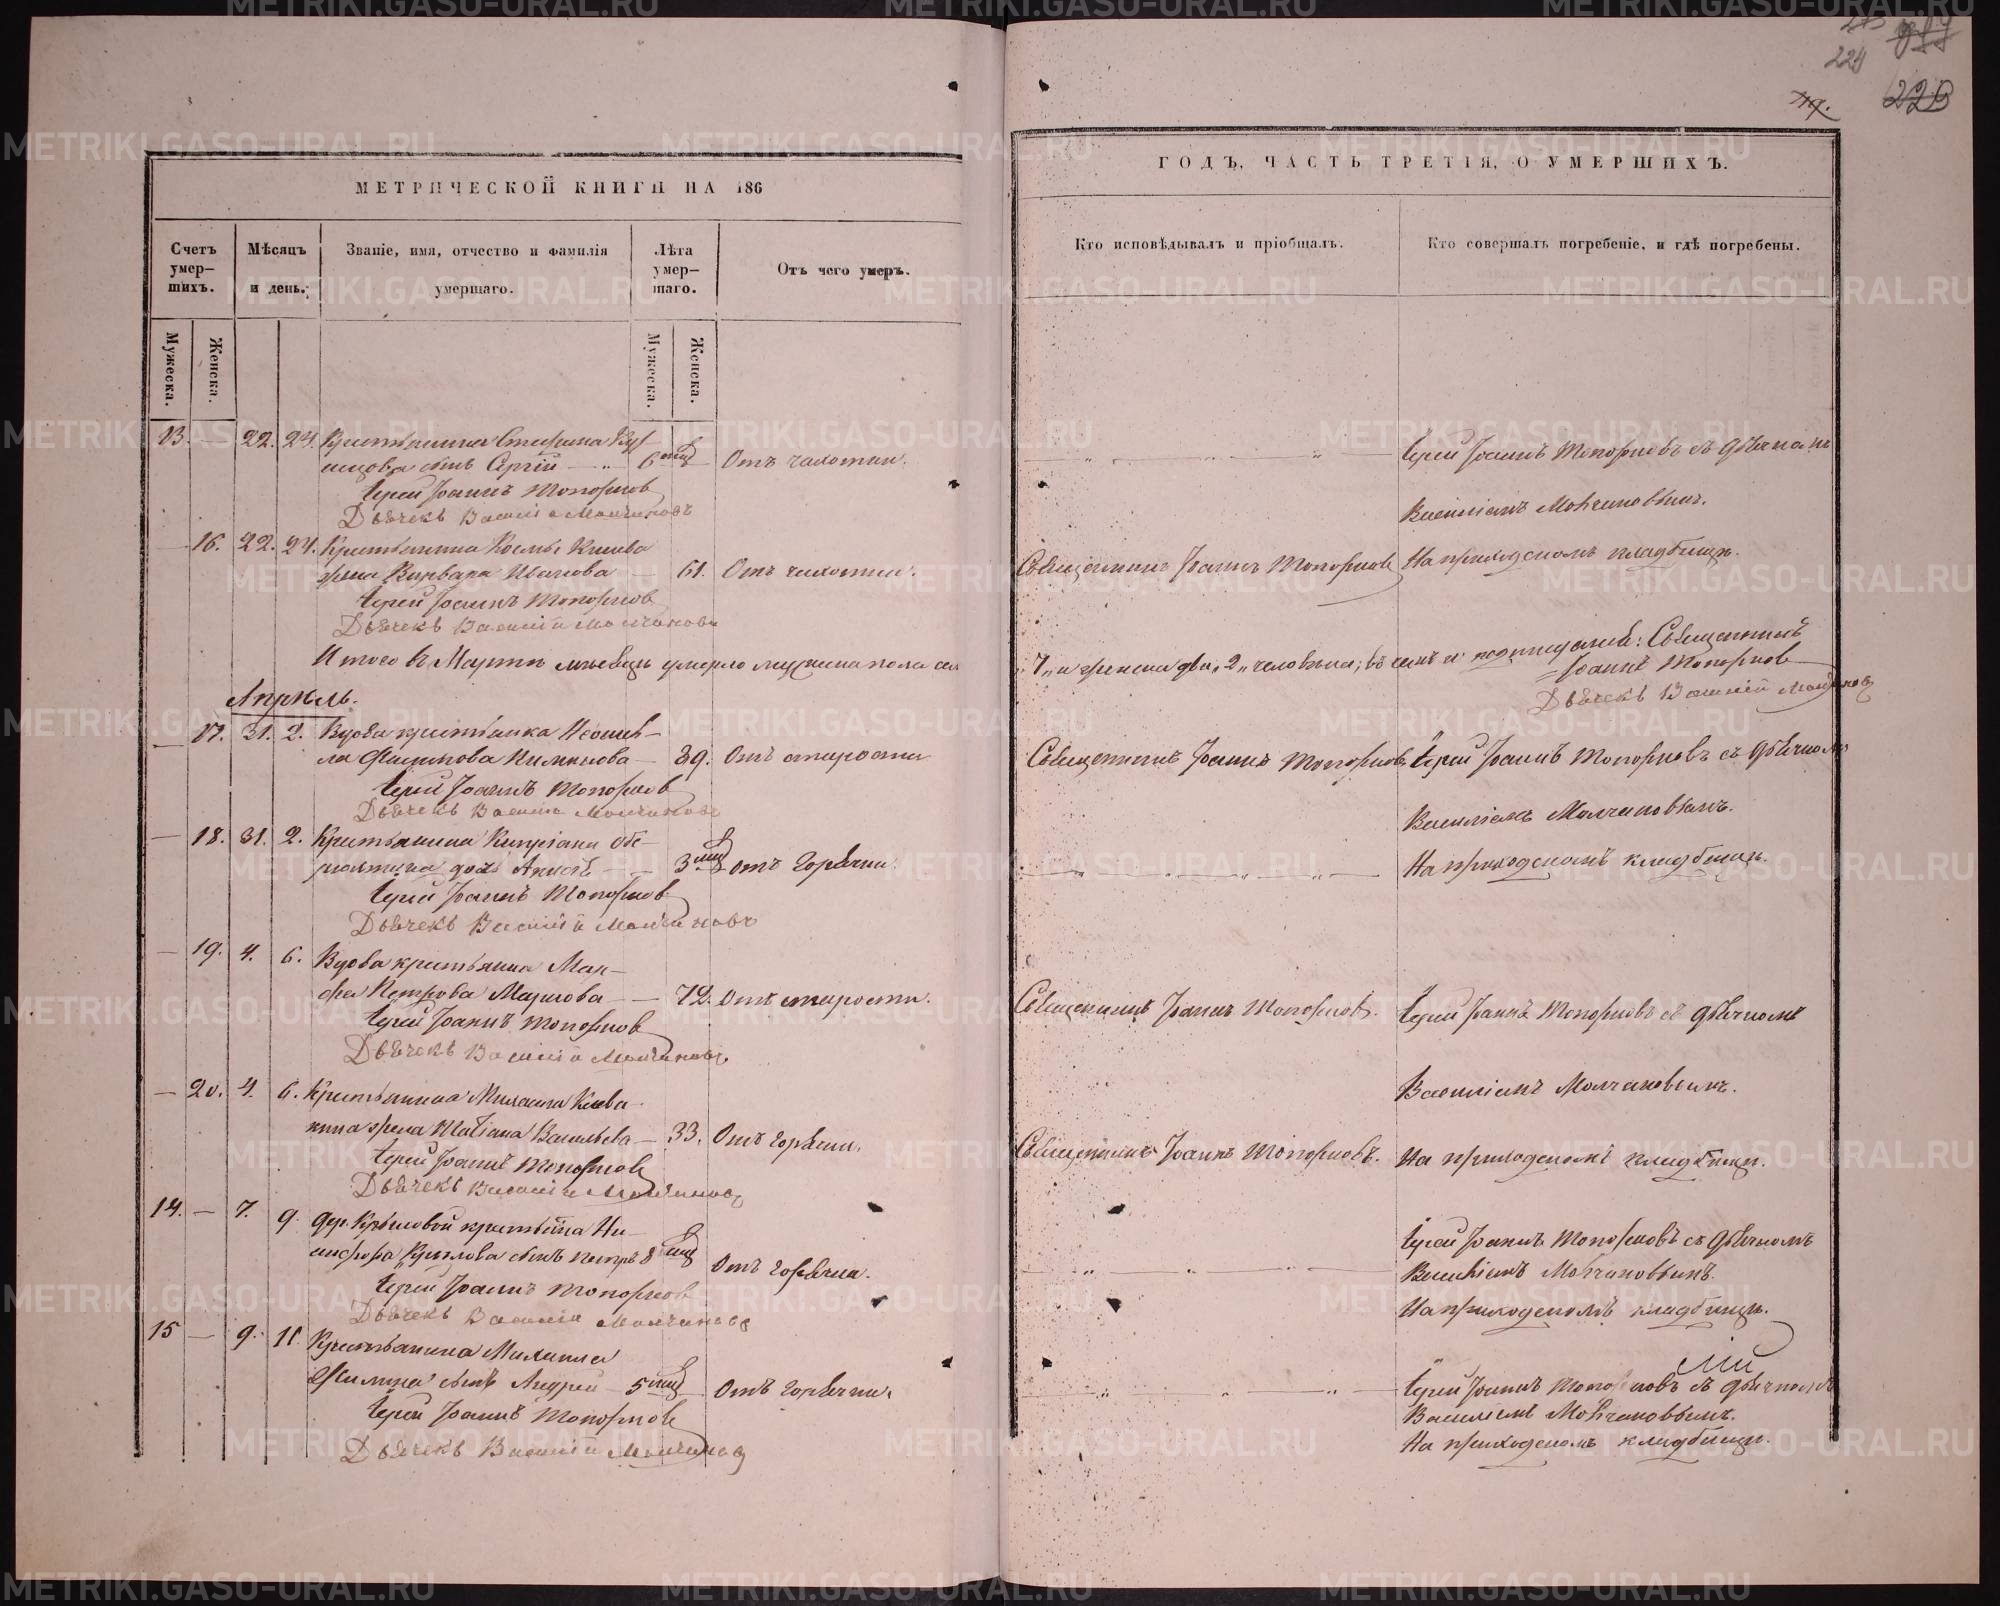 МЕТРИЧЕСКОЙ КНИГИ НА 186
Счетъ умер-
шихъ.
Мѣсяцъ
и день.
Званіе, имя, отчество и фамилія
умершаго.
Лѣта
умер-
шаго.
Отъ чего умеръ.
Мужеска.
Женска.
Мужеска.
Женска.
13. — 22. 24. Крестьянина
сынъ Сергій — 6 Отъ чахотки.
Іерей Іоаннъ Топорковъ
Дьячекъ Василій Молчановъ
— 16. 22. 24. Крестьянина
жена Варвара Иванова — 61. Отъ чахотки.
Іерей Іоаннъ Топорковъ
Дьячекъ Василій Молчановъ
Итого въ Мартѣ мѣсяцѣ умерло мужеска пола
Апрѣль.
— 17. 31. 2. Вдова крестьянка
39. Отъ старости
Іерей Іоаннъ Топорковъ
Дьячекъ Василій Молчановъ
— 18. 31. 2. Крестьянина
дочь 3 Отъ горячки.
Іерей Іоаннъ Топорковъ
Дьячекъ Василій Молчановъ
— 19. 4. 6. Вдова крестьянка Мар-
фа Петрова — 72. Отъ старости.
Іерей Іоаннъ Топорковъ
Дьячекъ Василій Молчановъ
— 20. 4. 6. Крестьянина
жена Татіана Васильева — 33. Отъ горячки.
Іерей Іоаннъ Топорковъ
Дьячекъ Василій Молчановъ
14. — 7. 9. дер. Крыловой крестьянина Ни-
кифора Крылова сынъ Петръ 8 Отъ горячки.
Іерей Іоаннъ Топорковъ
Дьячекъ Василій Молчановъ
15 — 9. 11. Крестьянина Михаила
сынъ Андрей — 5 Отъ горячки.
Іерей Іоаннъ Топорковъ
Дьячекъ Василій Молчановъ
224
ГОДЪ, ЧАСТЬ ТРЕТІЯ, О УМЕРШИХЪ.
Кто исповѣдывалъ и пріобщалъ.
Кто совершалъ погребеніе, и гдѣ погребены.
Іерей Іоаннъ Топорковъ съ дьячкомъ
Василіемъ Молчановымъ.
Священникъ Іоаннъ Топорковъ На приходскомъ кладбищѣ.
7„ и женска два„ 2„ человѣка; въ семъ и подписались: Священникъ
Іоаннъ Топорковъ
Дьячекъ Василій Молчановъ
Священникъ Іоаннъ Топорковъ Іерей Іоаннъ Топорковъ съ дьячкомъ
Василіемъ Молчановымъ.
На приходскомъ кладбищѣ.
Священникъ Іоаннъ Топорковъ. Іерей Іоаннъ Топорковъ съ дьячкомъ
Василіемъ Молчановымъ.
Священникъ Іоаннъ Топорковъ. На приходскомъ кладбищѣ.
Іерей Іоаннъ Топорковъ съ дьячкомъ
Василіемъ Молчановымъ.
На приходскомъ кладбищѣ.
Іерей Іоаннъ Топорковъ съ дьячкомъ
Василіемъ Молчановымъ.
На приходскомъ кладбищѣ.
METRIKI.GASO-URAL.RU